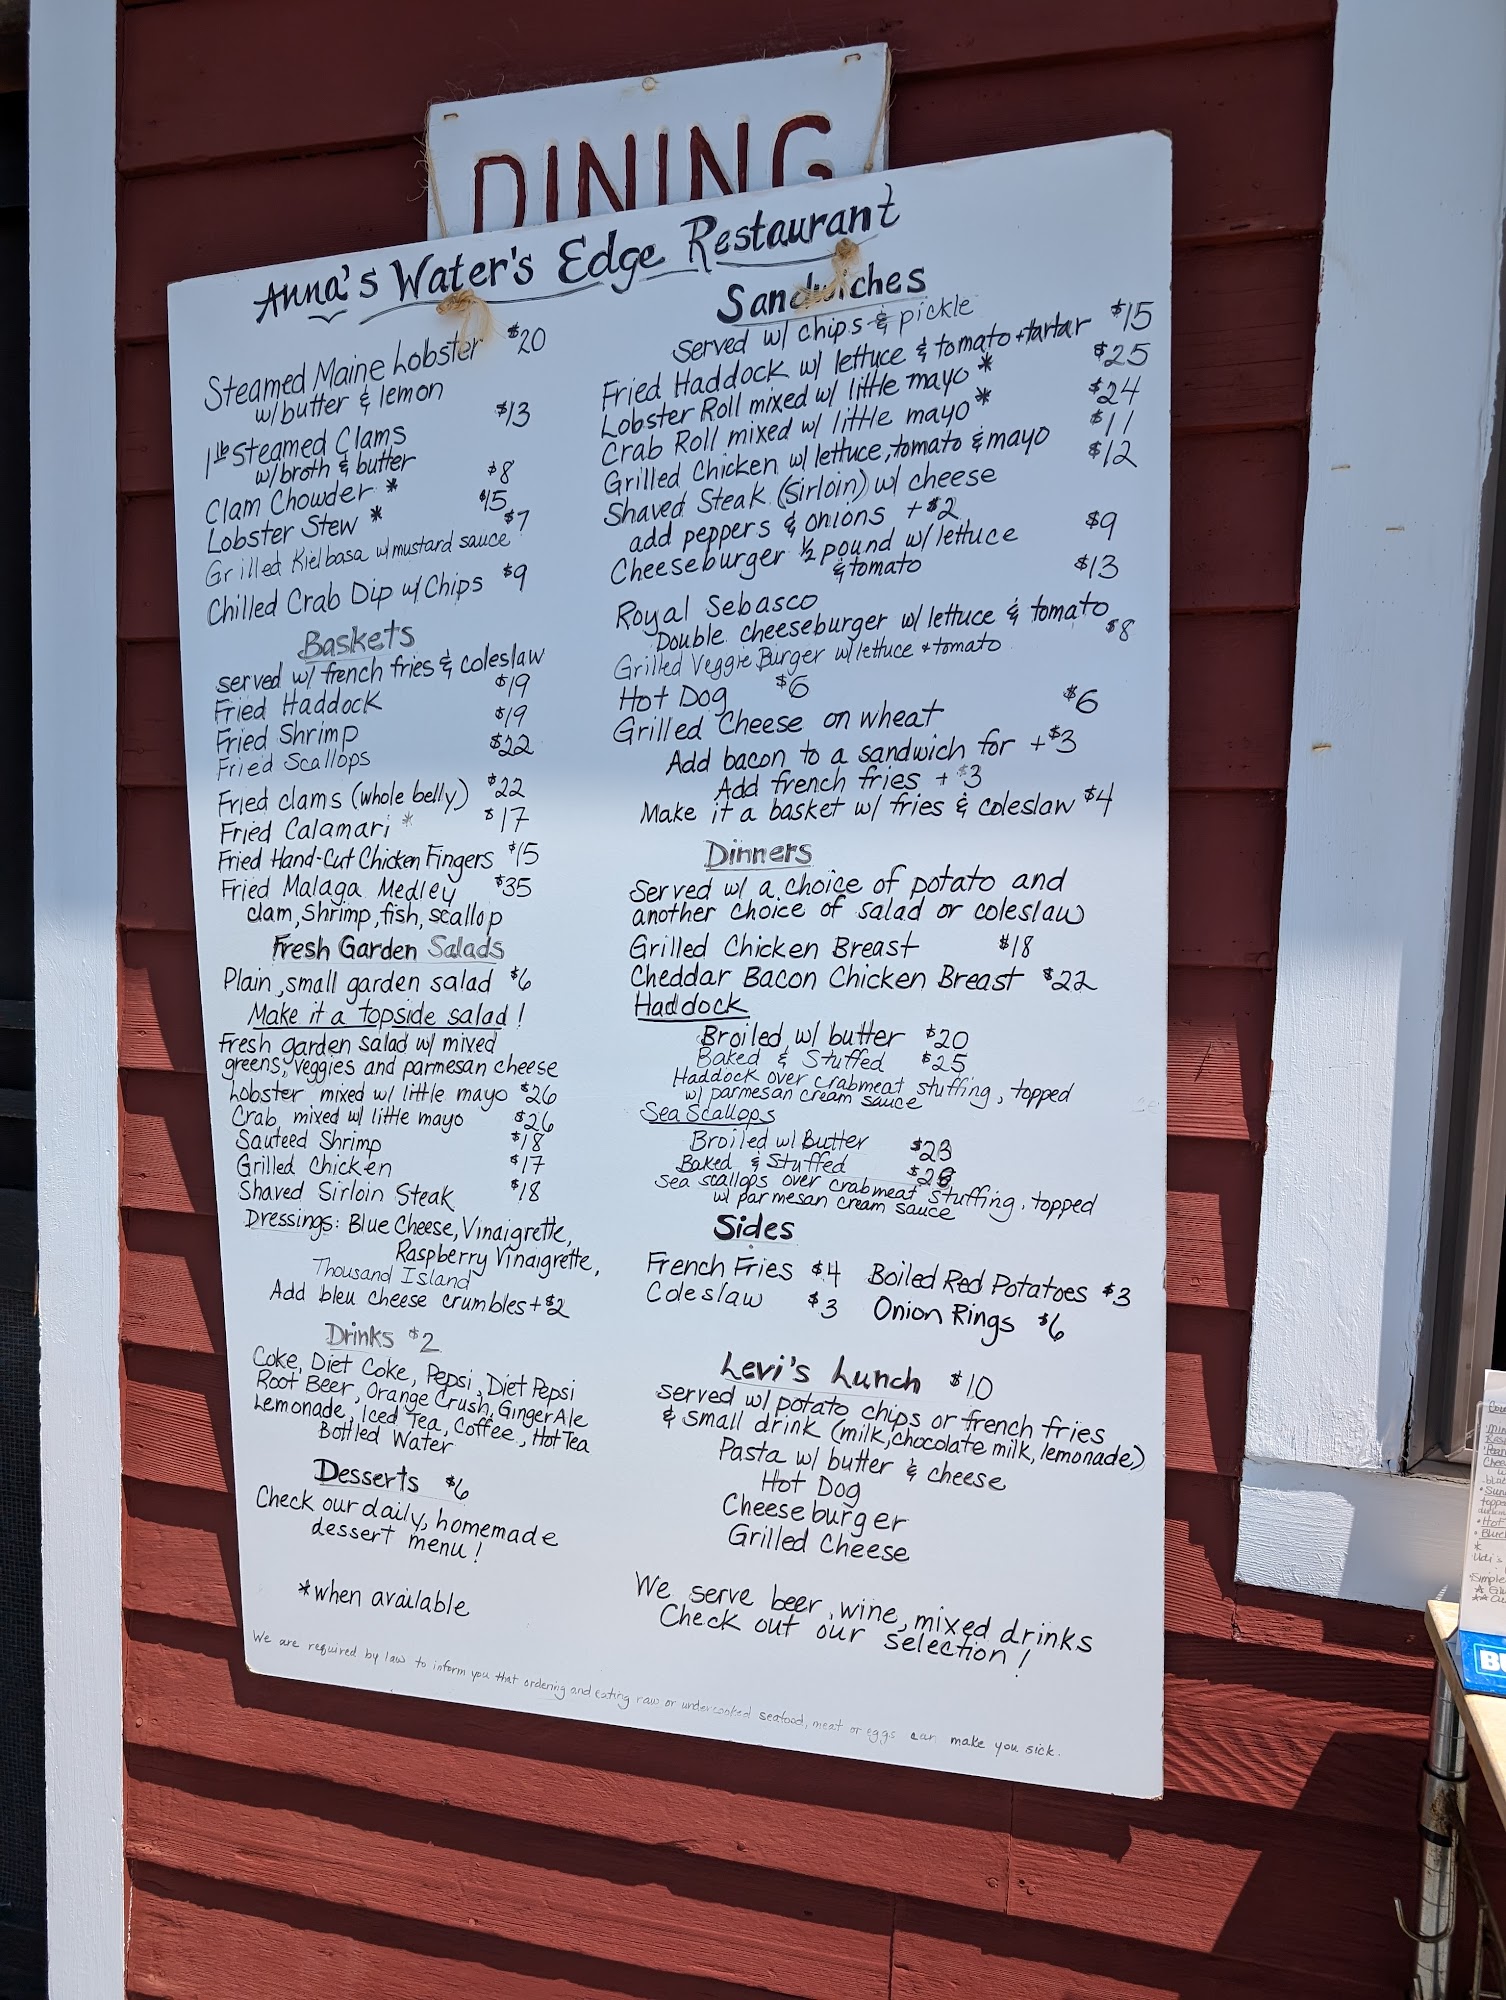 DINING
Anna's Water's Edge Restaurant
Steamed Maine Lobster $20
w/butter & lemon
1 lb Steamed Clams $13
w/broth & butter
Clam Chowder * $8
Lobster Stew * $15
Grilled Kielbasa w/mustard sauce $7
Chilled Crab Dip w/Chips $9
Baskets
served w/ french fries & coleslaw
Fried Haddock $19
Fried Shrimp $19
Fried Scallops $22
Fried clams (whole belly) $22
Fried Calamari * $17
Fried Hand-Cut Chicken Fingers $15
Fried Malaga Medley $35
clam, shrimp, fish, scallop
Fresh Garden Salads
Plain, small garden salad $6
Make it a topside salad!
Fresh garden salad w/ mixed
greens, veggies and parmesan cheese
Lobster mixed w/ little mayo $26
Crab, mixed w/ little mayo $26
Sauteed Shrimp $18
Grilled Chicken $17
Shaved Sirloin Steak $18
Dressings: Blue Cheese, Vinaigrette,
Raspberry Vinaigrette,
Thousand Island
Add bleu cheese crumbles +$2
Drinks $2
Coke, Diet Coke, Pepsi, Diet Pepsi
Root Beer, Orange Crush, Ginger Ale
Lemonade, Iced Tea, Coffee, Hot Tea
Bottled Water
Desserts $6
Check our daily, homemade
dessert menu!
*when available
Sandwiches
served w/ chips & pickle
Fried Haddock w/ lettuce & tomato + tartar $15
Lobster Roll mixed w/ little mayo * $25
Crab Roll mixed w/ little mayo * $24
Grilled Chicken w/ lettuce, tomato & mayo $11
Shaved Steak (Sirloin) w/ cheese $12
add peppers & onions +$2
Cheeseburger ½ pound w/ lettuce $9
& tomato
Royal Sebasco $13
Double cheeseburger w/ lettuce & tomato
Grilled Veggie Burger w/ lettuce + tomato $8
Hot Dog $6
Grilled Cheese on wheat $6
Add bacon to a sandwich for +$3
Add french fries + $3
Make it a basket w/ fries & coleslaw $4
Dinners
Served w/ a choice of potato and
another choice of salad or coleslaw
Grilled Chicken Breast $18
Cheddar Bacon Chicken Breast $22
Haddock
Broiled w/ butter $20
Baked & Stuffed $25
Haddock over crabmeat stuffing, topped
w/ parmesan cream sauce
Sea Scallops
Broiled w/ Butter $23
Baked & Stuffed
Sea scallops over crabmeat stuffing, topped
w/ parmesan cream sauce
Sides
French Fries $4 Boiled Red Potatoes $3
Coleslaw $3 Onion Rings $6
Levi's Lunch $10
served w/ potato chips or french fries
& small drink (milk, chocolate milk, lemonade)
Pasta w/ butter & cheese
Hot Dog
Cheeseburger
Grilled Cheese
We serve beer, wine, mixed drinks
Check out our selection!
We are required by law to inform you that ordering and eating raw or undercooked seafood, meat or eggs can make you sick.